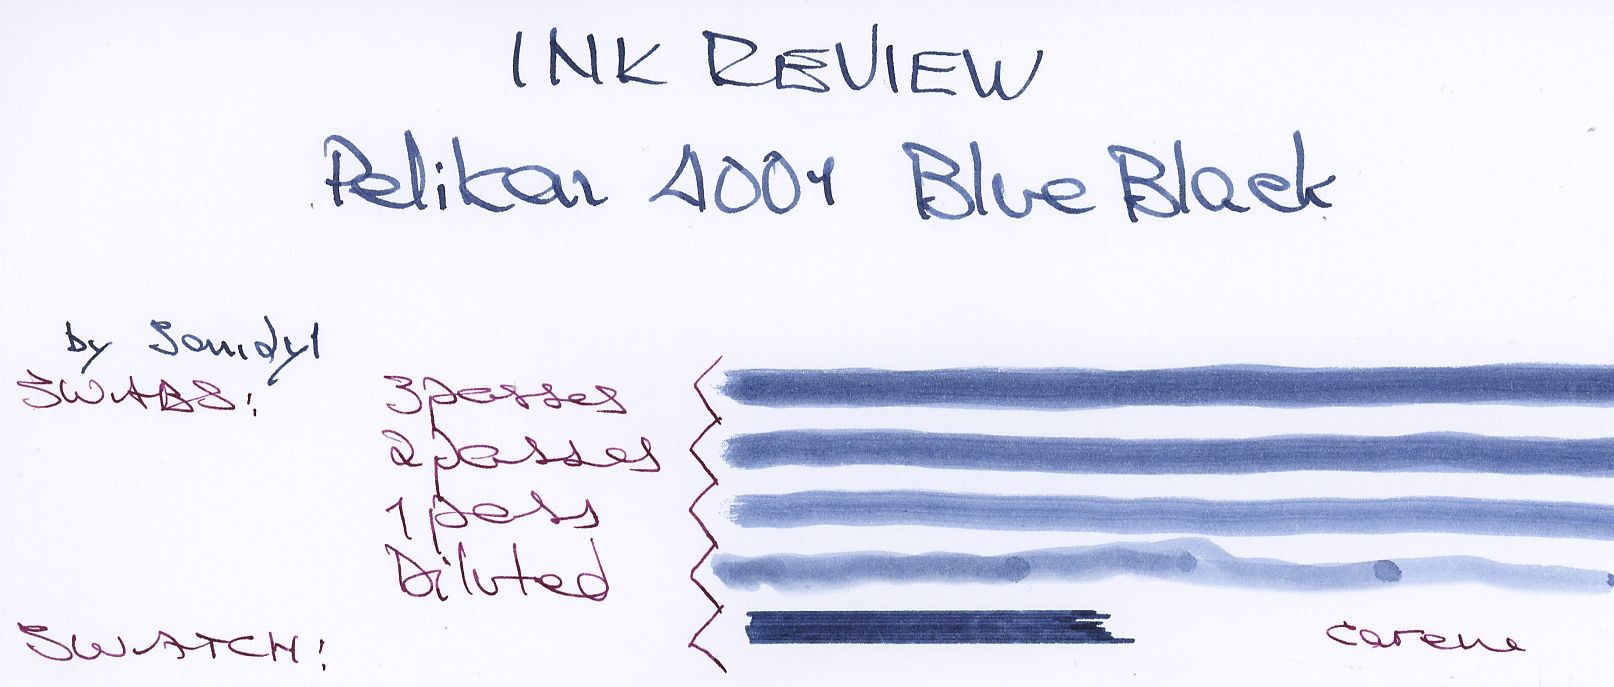 INK REVIEW
Pelikan 4001 Blue Black
by Sandy1
SWABS:
3 passes
2 passes
1 pass
Diluted
SWATCH:
Carene